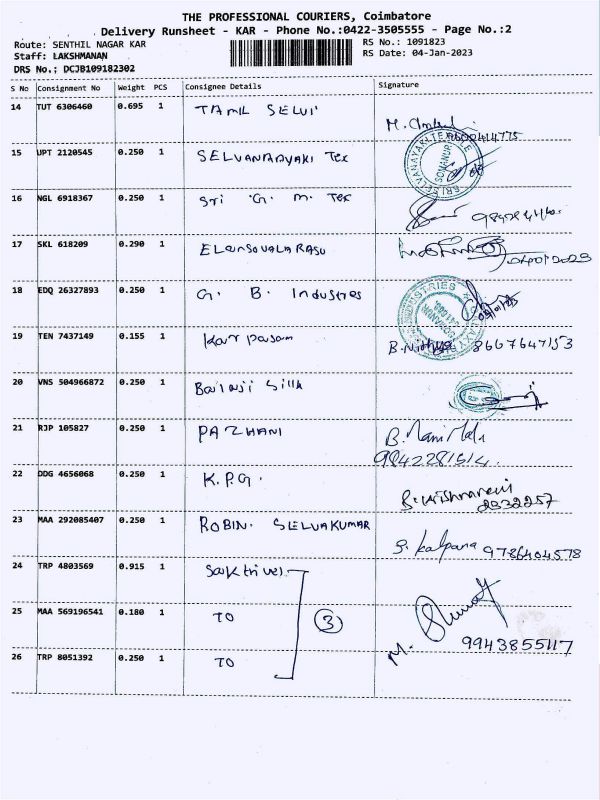 THE PROFESSIONAL COURIERS, Coimbatore
Delivery Runsheet - KAR - Phone No.:0422-3505555 - Page No.:2
Route: SENTHIL NAGAR KAR
RS No.: 1091823
Staff: LAKSHMANAN
RS Date: 04-Jan-2023
DRS No.; DCJB109182302
S No Consignment No Weight PCS Consignee Details Signature
14 TUT 6306460 0.695 1 TAMIL SELVI
15 UPT 2120545 0.250 1 SELVANAAYAKI Tex
16 NGL 6918367 0.250 1 Sri G. M. Tex
17 SKL 618209 0.290 1
18 EDQ 26327893 0.250 1 G. B. Industries
19 TEN 7437149 0.155 1 B.Nithya 8667647153
20 VNS 504966872 0.250 1 Balaji Silk
21 RJP 105827 0.250 1 PAZHANI B.Mani Mala
9842281514.
22 DDG 4656068 0.250 1 K.P.G.
2332257
23 MAA 292085407 0.250 1 ROBIN. SELVAKUMAR S. Kalpana 9786404578
24 TRP 4803569 0.915 1 Sakthivel
25 MAA 569196541 0.180 1 TO (3) M.
9943855117
26 TRP 8051392 0.250 1 TO